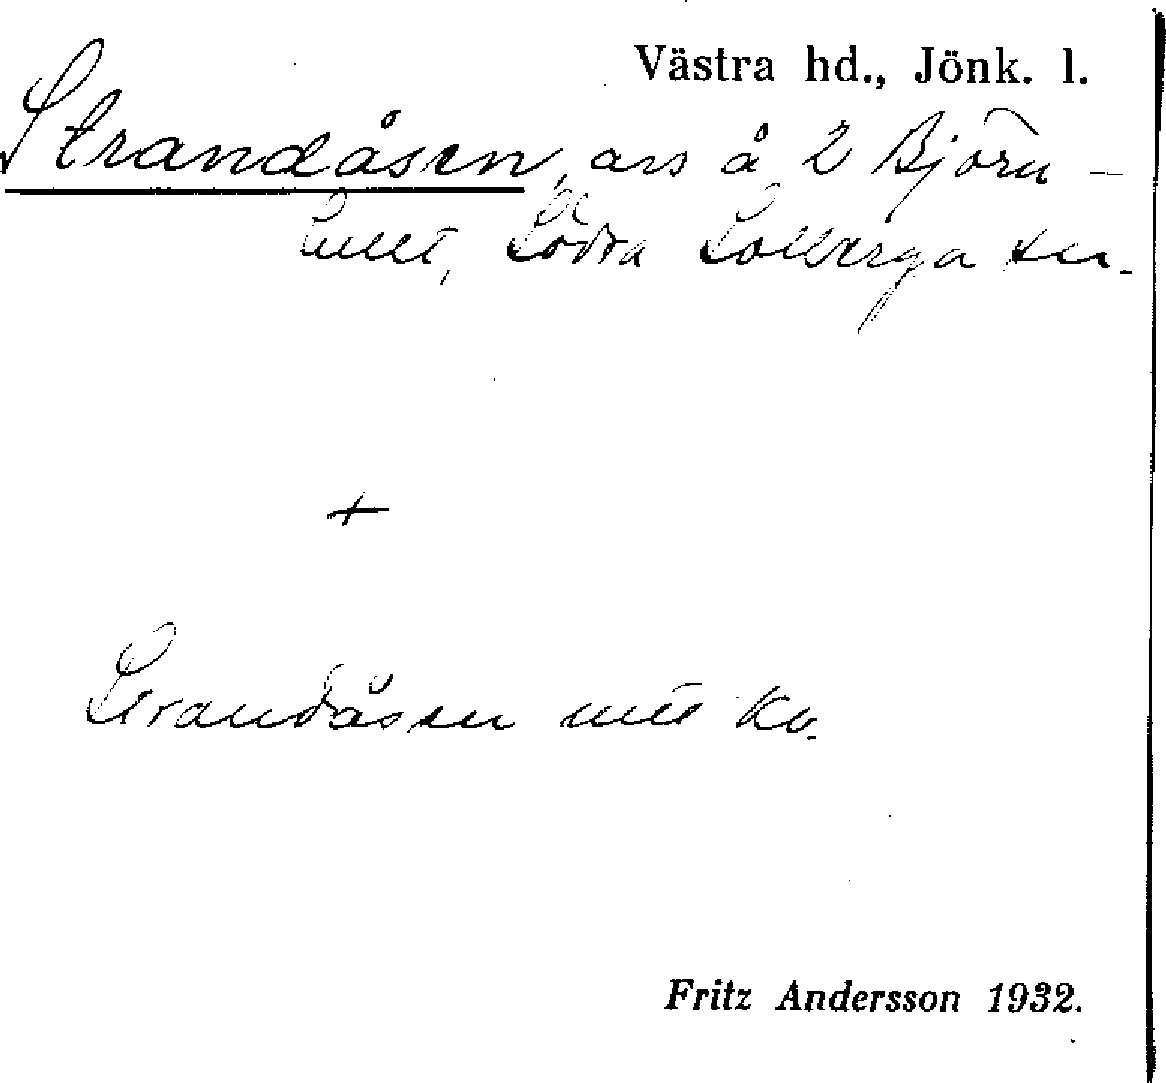 Västra hd., Jönk. l.
Strandåsen, avs å 2 Björn-
hult, Södra Solberga sn.
+
Strandåsen
Fritz Andersson 1932.